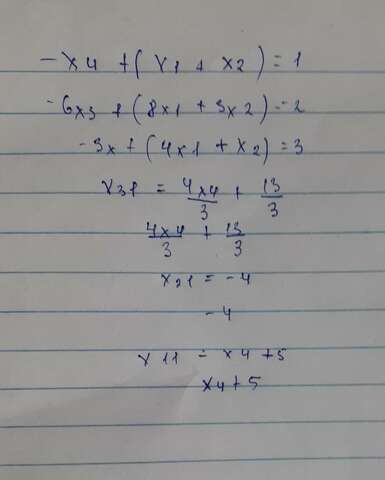 - x4 + ( x1 + x2 ) = 1
- 6x3 + ( 8x1 + 3x2 ) = 2
- 3x + ( 4x1 + x2 ) = 3
x31 = 4x4/3 + 13/3
4x4/3 + 13/3
x21 = - 4
- 4
x11 = x4 + 5
x4 + 5